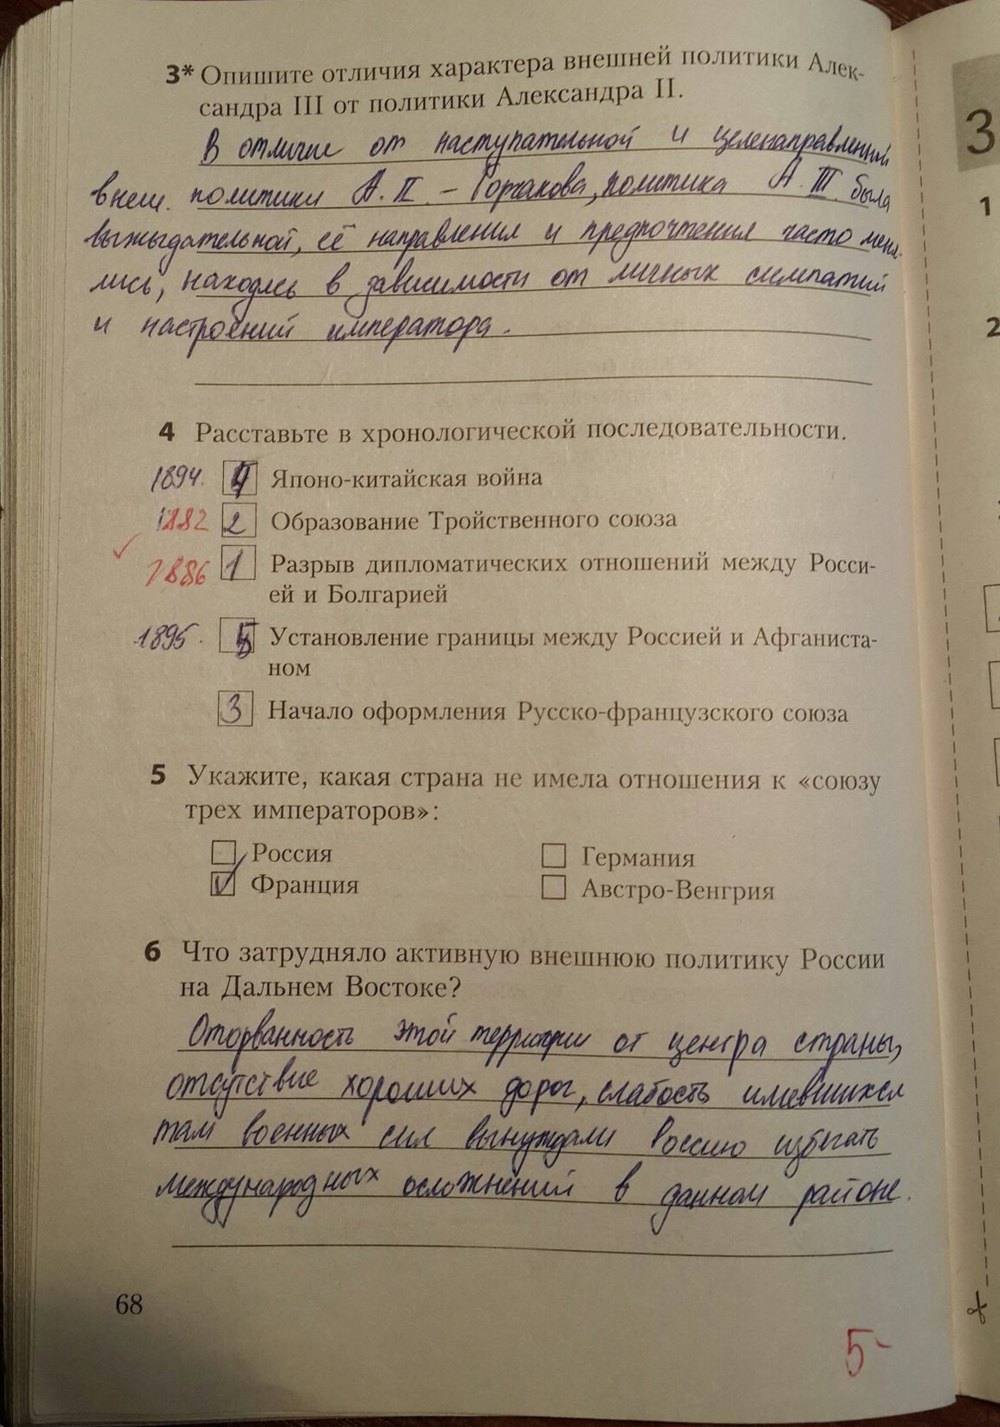 3* Опишите отличия характера внешней политики Алек-
сандра III от политики Александра II.
В отличие от наступательной и целенаправленной
внеш. политики А. II – Горчакова, политика А. III. была
выжыдательной, её направления и предпочтения часто меня-
лись, находясь в зависимости от личных симпатий
и настроений императора.
4 Расставьте в хронологической последовательности.
1894. 4 Японо-китайская война
1882 2 Образование Тройственного союза
1886 1 Разрыв дипломатических отношений между Росси-
ей и Болгарией
1895. 5 Установление границы между Россией и Афганиста-
ном
3 Начало оформления Русско-французского союза
5 Укажите, какая страна не имела отношения к «союзу
трех императоров»:
Россия Германия
Франция Австро-Венгрия
6 Что затрудняло активную внешнюю политику России
на Дальнем Востоке?
Оторванность этой территории от центра страны,
отсутствие хороших дорог, слабость имевшихся
там военных сил вынуждали Россию избегать
международных осложнений в данном районе.
68
5-
3
1
2